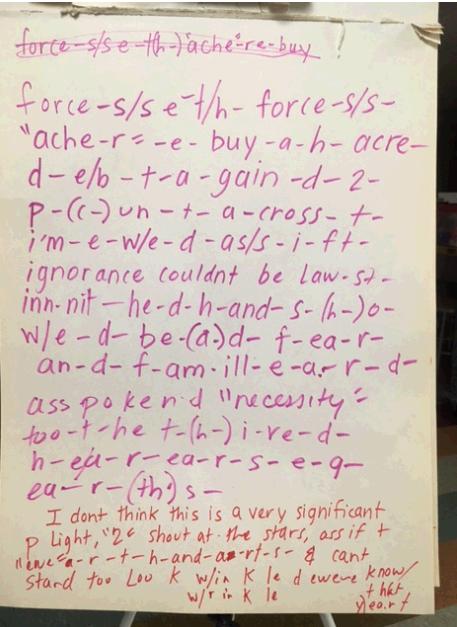 force-s/s e-t(h-)"ache"-re-buy !
force-s/s e-t/h- force-s/s-
"ache-r= -e- buy -a-h- acre-
d-e/b -t-a-gain-d-2-
p-(c-)un-t-a-cross-t-
i'm-e-w/e-d-as/s-i-ft-
ignorance couldnt be law-st-
inn-nit-he-d-h-and-s-(h-)o-
w/e-d-be-(a-)d-f-ea-r-
an-d-f-am-ill-e-a-r-d-
ass poken-d "necessity"-
too-t-he t-(h-)i-re-d-
h-ea-r-ea-r-s-e-q-
ea-r-(th)s-
I dont think this is a very significant
p Light, "2" shout at the stars, ass if t
a-r-t-h-and-a-rt-s- & cant
stand too Loo K w/in K le d ewere know/
w/r in K le t hat
year t